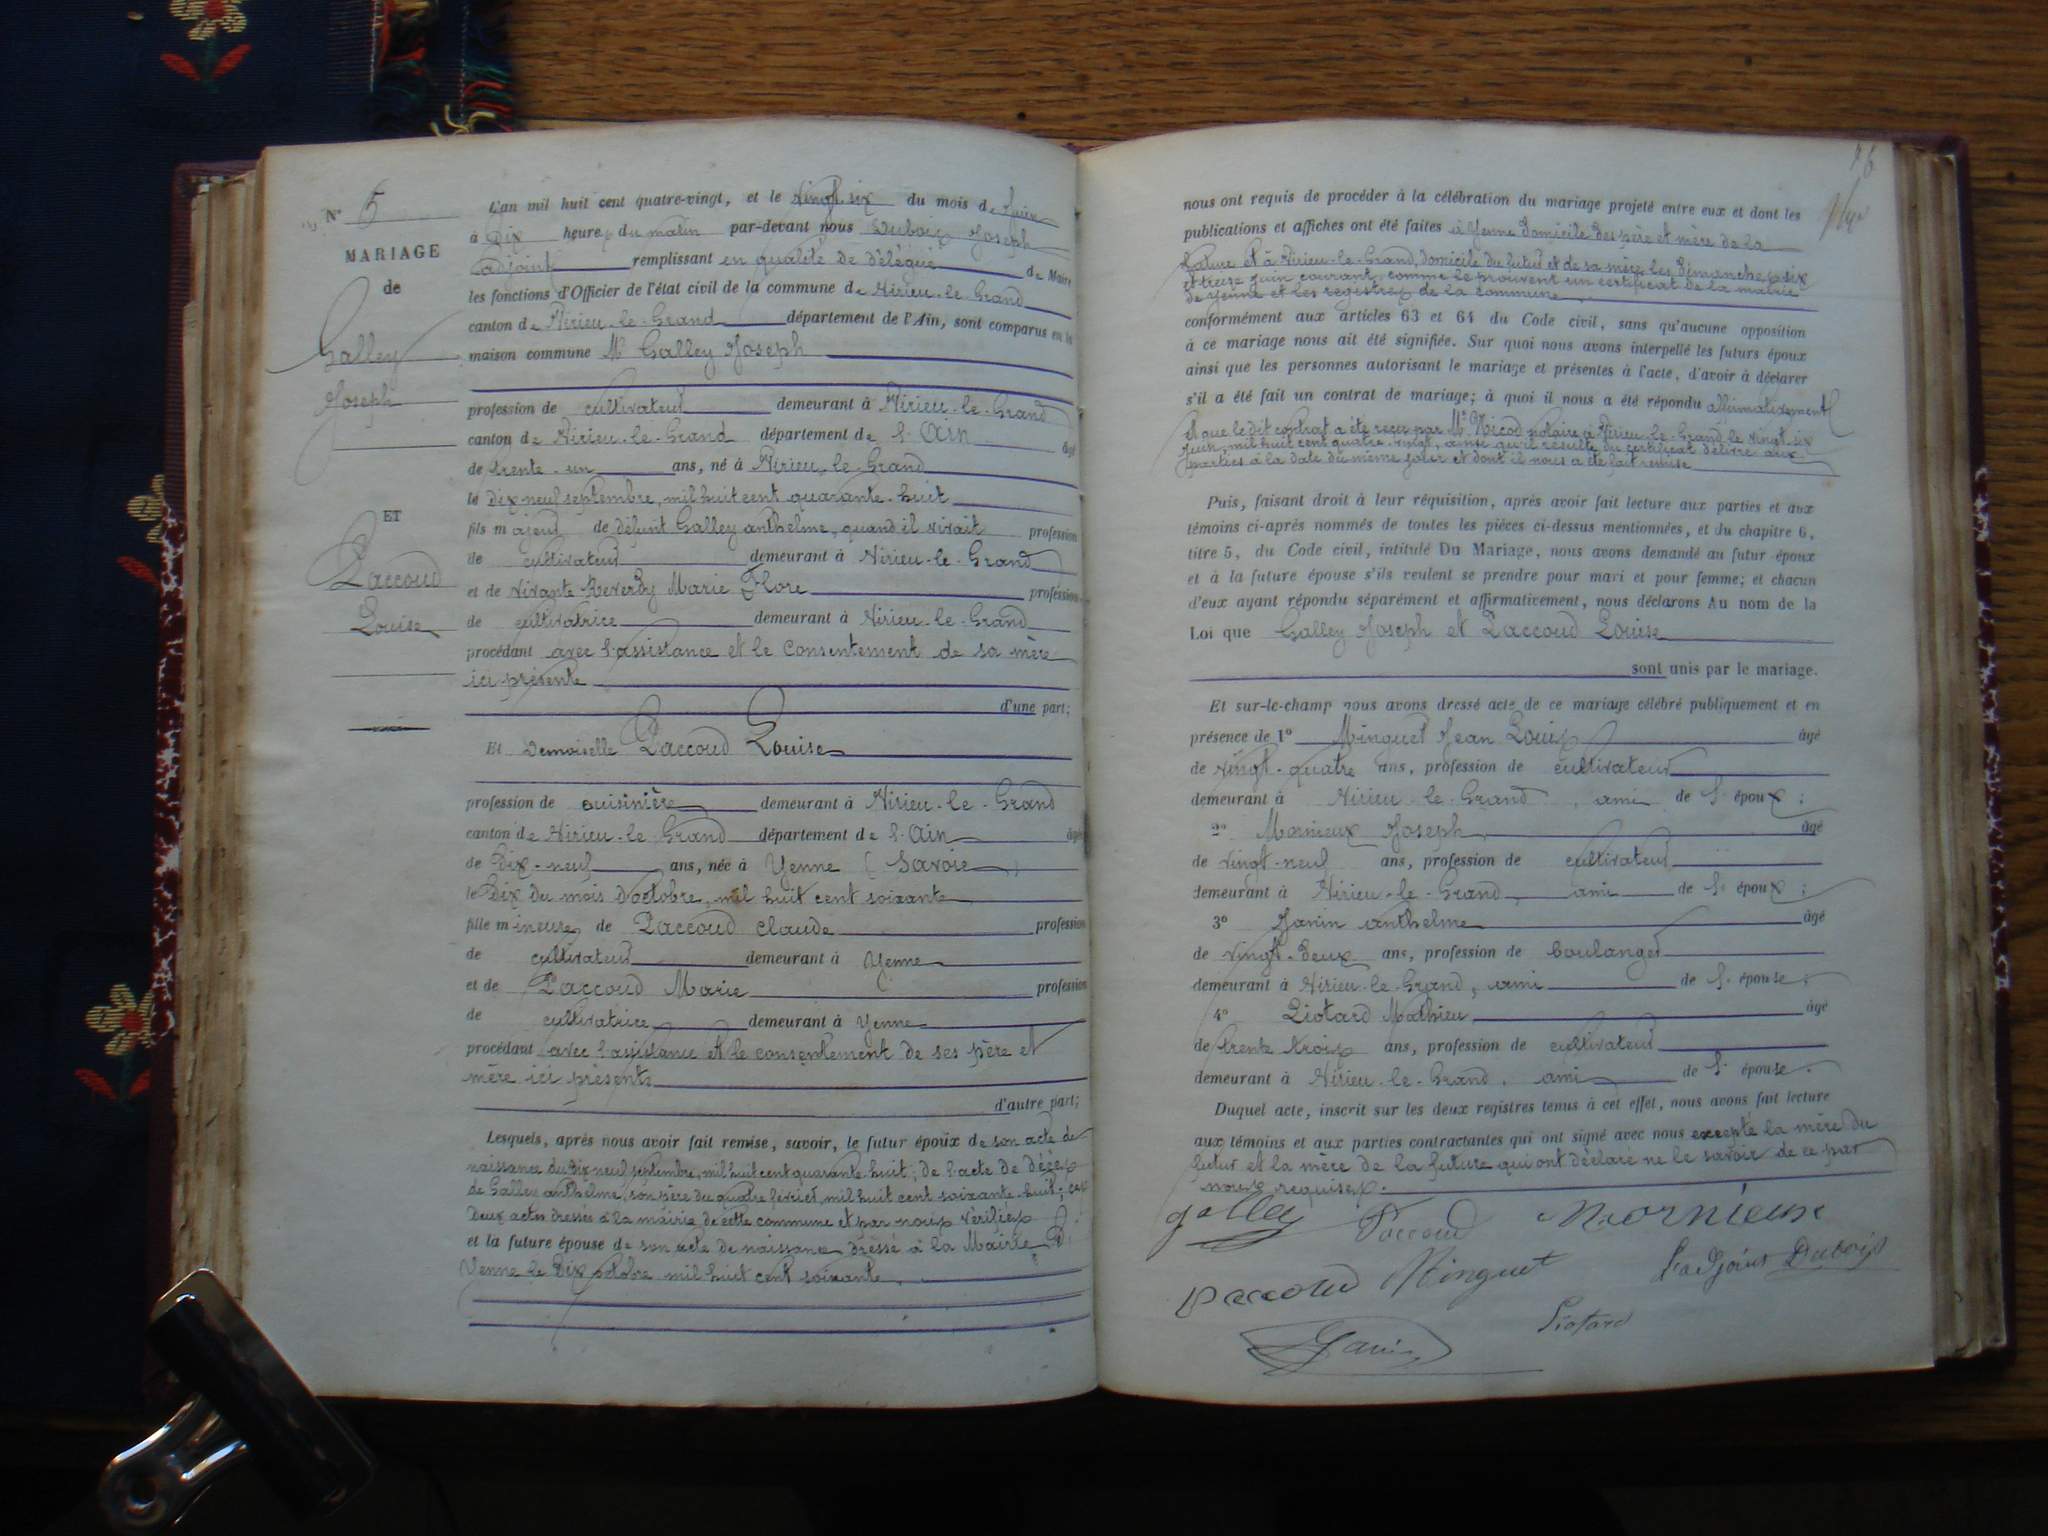 N° 5
MARIAGE
de
Galley
Joseph
ET
Paccoud
Louise
L'an mil huit cent quatre-vingt, et le vingt six du mois de Juin
à Dix heures du matin par-devant nous Dubois Joseph
adjoint remplissant en qualité de délégué de Maire
les fonctions d'Officier de l'état civil de la commune de Virieu-le-Grand
canton de Virieu-le-Grand département de l'Ain, sont comparus en la
maison commune Mr Galley Joseph
profession de cultivateur demeurant à Virieu-le-Grand
canton de Virieu-le-Grand département de l'Ain âgé
de trente-un ans, né à Virieu-le-Grand
le Dix neuf septembre, mil huit cent quarante-huit
fils majeur de défunt Galley anthelme, quand il vivait profession
de cultivateur demeurant à Virieu-le-Grand
et de vivante Reverdy Marie Flore profession
de cultivatrice demeurant à Virieu-le-Grand
procédant avec l'assistance et le consentement de sa mère
ici présente
d'une part;
Et Demoiselle Paccoud Louise
profession de cuisinière demeurant à Virieu-le-Grand
canton de Virieu-le-Grand département de l'Ain âgée
de Dix-neuf ans, née à Yenne (Savoie)
le Dix du mois d'octobre, mil huit cent soixante
fille mineure de Paccoud claude profession
de cultivateur demeurant à Yenne
et de Paccoud Marie profession
de cultivatrice demeurant à Yenne
procédant avec l'assistance et le consentement de ses père et
mère ici présents
d'autre part;
Lesquels, après nous avoir fait remise, savoir, le futur époux de son acte de
naissance du Dix neuf septembre, mil huit cent quarante-huit; de l'acte de décès
de Galley anthelme, son père du quatre février, mil huit cent soixante-huit; ces
deux actes dressés à la mairie de cette commune et par nous vérifiés
et la future épouse de son acte de naissance dressé à la Mairie d'
Yenne le Dix octobre mil huit cent soixante.
76
nous ont requis de procéder à la célébration du mariage projeté entre eux et dont les
publications et affiches ont été faites à Yenne domicile des père et mère de la
future et à Virieu-le-Grand, domicile du futur et de sa mère les dimanches six
et treize Juin courant, comme le prouvent un certificat de la mairie
de Yenne et les registres de la commune
conformément aux articles 63 et 64 du Code civil, sans qu'aucune opposition
à ce mariage nous ait été signifiée. Sur quoi nous avons interpellé les futurs époux
ainsi que les personnes autorisant le mariage et présentes à l'acte, d'avoir à déclarer
s'il a été fait un contrat de mariage; à quoi il nous a été répondu affirmativement
et que le dit contrat a été reçu par Me Nicod notaire à Virieu-le-Grand le vingt-six
Juin, mil huit cent quatre-vingt, ainsi qu'il résulte du certificat délivré aux
parties à la date du même jour et dont il nous a été fait remise
Puis, faisant droit à leur réquisition, après avoir fait lecture aux parties et aux
témoins ci-après nommés de toutes les pièces ci-dessus mentionnées, et du chapitre 6,
titre 5, du Code civil, intitulé Du Mariage, nous avons demandé au futur époux
et à la future épouse s'ils veulent se prendre pour mari et pour femme; et chacun
d'eux ayant répondu séparément et affirmativement, nous déclarons Au nom de la
Loi que Galley Joseph et Paccoud Louise
sont unis par le mariage.
Et sur-le-champ nous avons dressé acte de ce mariage célébré publiquement et en
présence de 1° Minguet Jean Louis âgé
de vingt-quatre ans, profession de cultivateur
demeurant à Virieu-le-Grand, ami de l'époux;
2° Mornieux Joseph âgé
de vingt-neuf ans, profession de cultivateur
demeurant à Virieu-le-Grand, ami de l'époux;
3° Janin anthelme âgé
de vingt-deux ans, profession de boulanger
demeurant à Virieu-le-Grand, ami de l'épouse;
4° Liotard Mathieu âgé
de trente trois ans, profession de cultivateur
demeurant à Virieu-le-Grand, ami de l'épouse.
Duquel acte, inscrit sur les deux registres tenus à cet effet, nous avons fait lecture
aux témoins et aux parties contractantes qui ont signé avec nous excepté la mère du
futur et la mère de la future qui ont déclaré ne le savoir de ce par
nous requises.
galley Paccoud Mornieux
Paccoud Minguet l'adjoint Dubois
Liotard
Janin